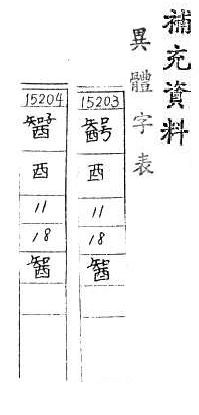 補充資料
異體字表
15203
酉
11
18
15204
酉
11
18